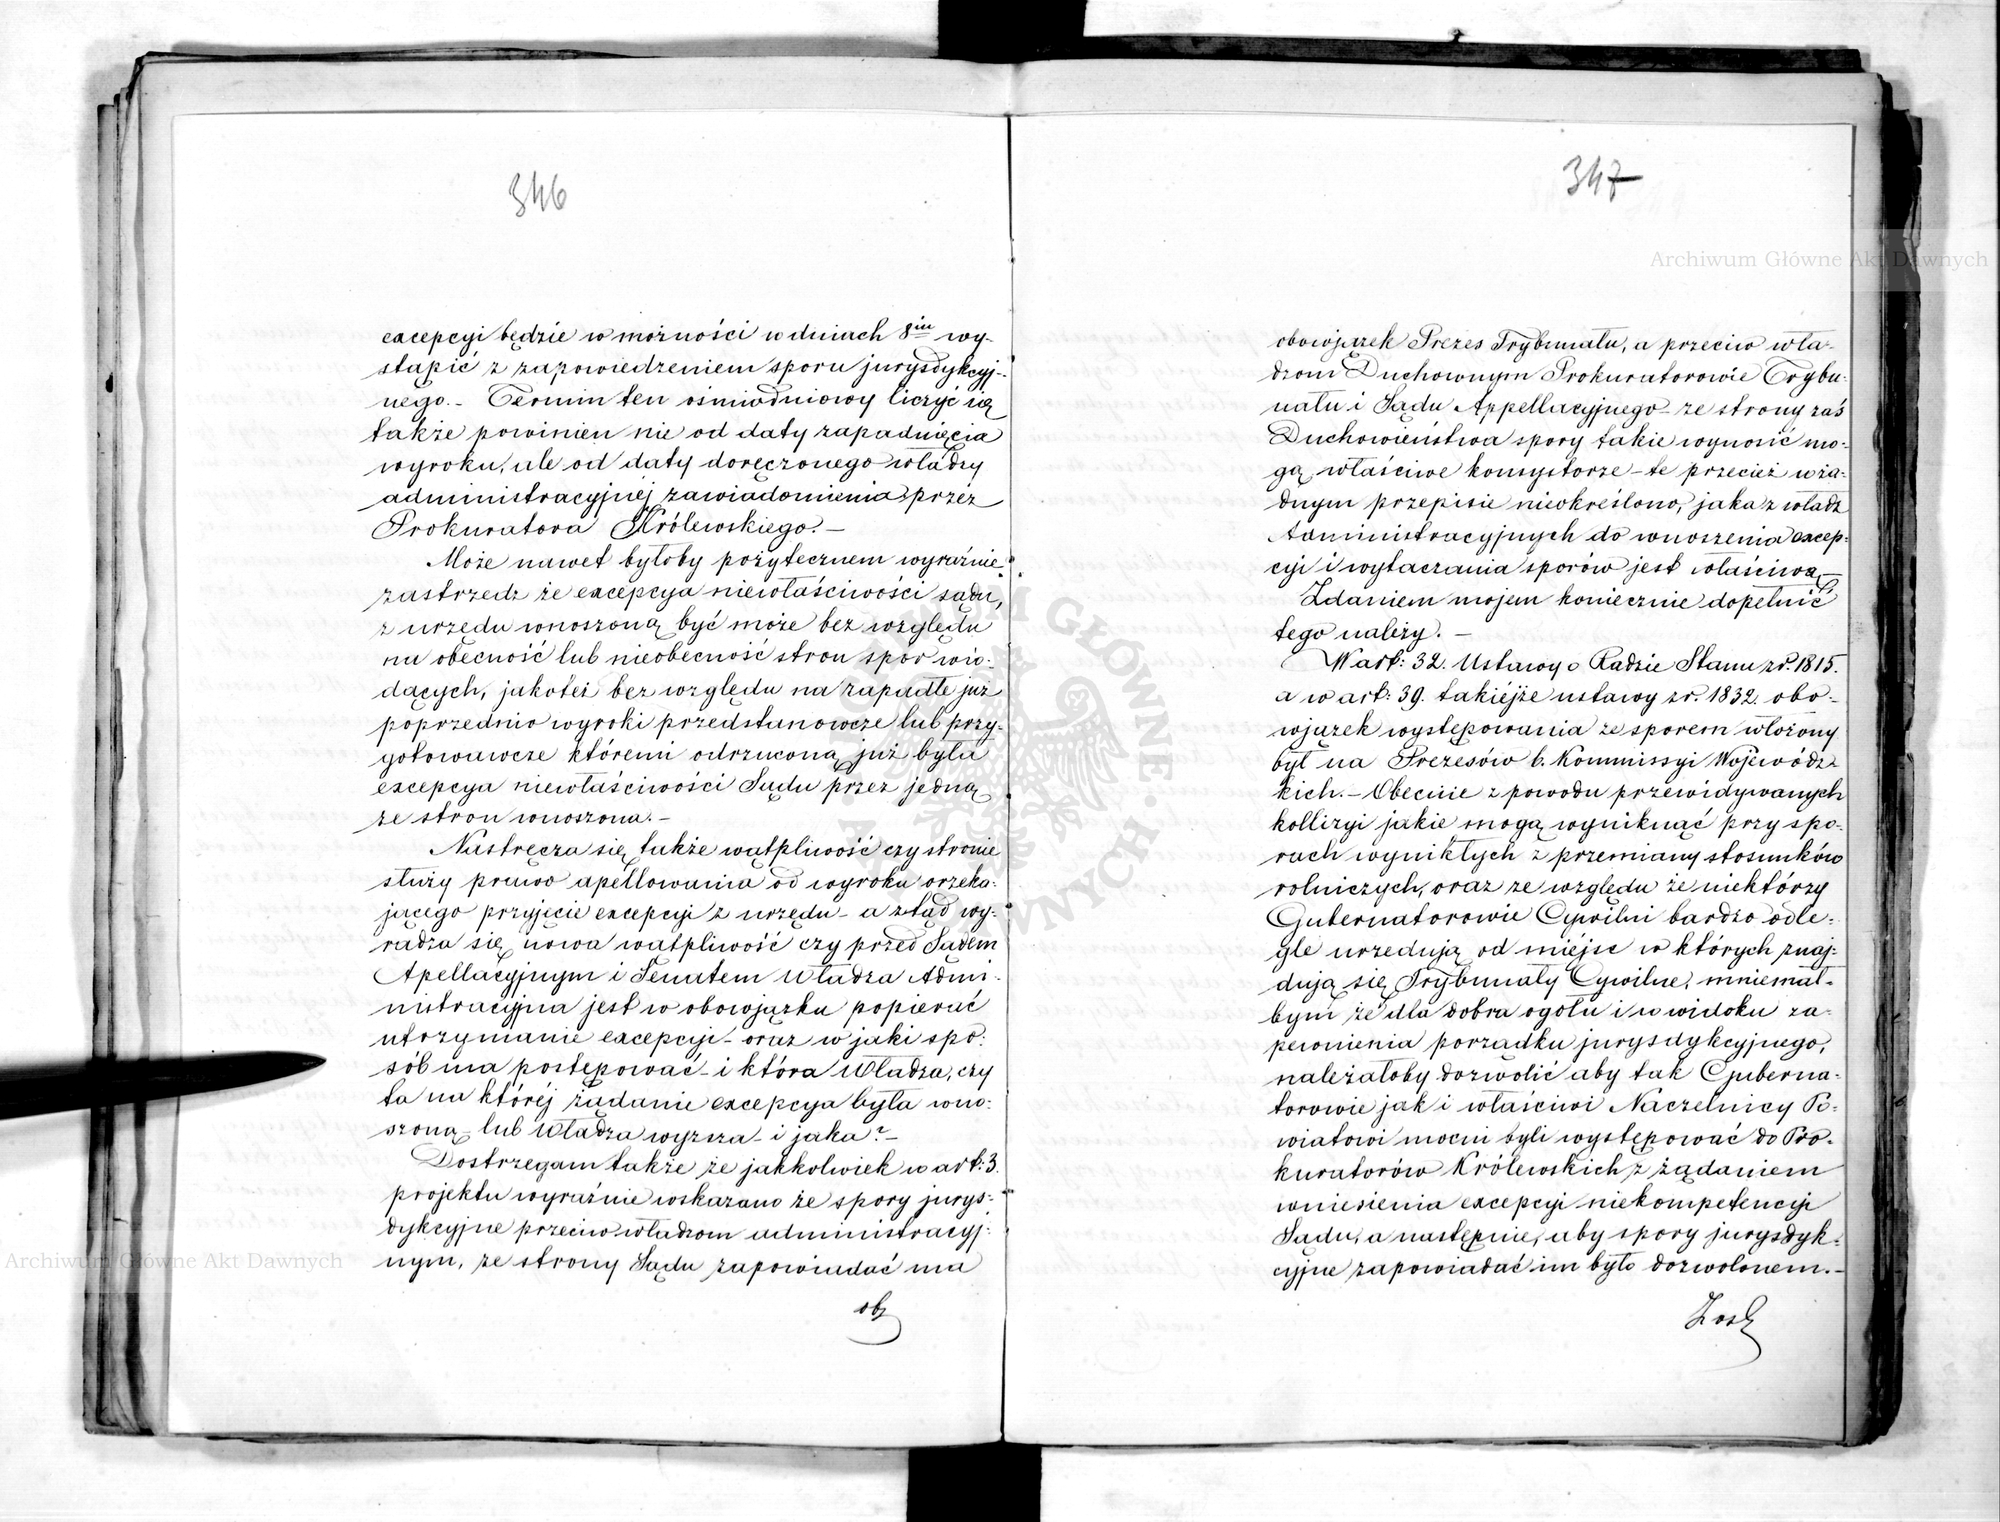 346
excepcyi będzie w możności w dniach 8iu wy-
stąpić z zapowiedzeniem sporu jurysdykcyj-
nego. - Termin ten ośmiodniowy liczyć się
także powinien nie od daty zapadnięcia
wyroku, ale od daty doręczonego władzy
administracyjnéj zawiadomienia przez
Prokuratora Królewskiego. -
Może nawet byłoby pożytecznem wyraźnie
zastrzedz że excepcya niewłaściwości sądu,
z urzędu wnoszoną być może bez względu
na obecność lub nieobecność stron spór wio-
dących, jakoteż bez względu na zapadłe już
poprzednio wyroki przedstanowcze lub przy-
gotowawcze któremi odrzuconą już była
excepcya niewłaściwości Sądu przez jedną
ze stron wnoszona. -
Nastręcza się także wątpliwość czy stronie
służy prawo apellowania od wyroku orzeka-
jącego przyjęcie excepcyi z urzędu - a ztąd wy-
radza się nowa wątpliwość czy przed Sądem
Apellacyjnym i Senatem Władza Admi-
nistracyjna jest w obowjązku popierać
utrzymanie excepcyi - oraz w jaki spo-
sób ma postępować - i która Władza, czy
ta na któréj żądanie excepcya była wno-
szoną - lub Władza wyższa - i jaka? -
Dostrzegam także że jakkolwiek w art: 3.
projektu wyraźnie wskazano że spory jurys-
dykcyjne przeciw władzom administracyj-
nym, ze strony Sądu zapowiadać ma
ob
347
obowjązek Prezes Trybunału, a przeciw wła-
dzom Duchownym Prokuratorowie Trybu-
nału i Sądu Appellacyjnego - ze strony zaś
Duchowieństwa spory takie wynosić mo-
gą właściwe konsystorze - te przecież w ża-
dnym przepisie nieokreślono, jaka z władz
Administracyjnych do wnoszenia excep-
cyi i wytaczania sporów jest właściwą -
Zdaniem mojem koniecznie dopełnić
tego należy. -
W art: 32. Ustawy o Radzie Stanu z r. 1815.
a w art: 39. takiéjże ustawy z r. 1832. obo-
wjązek występowania ze sporem włożony
był na Prezesów b. Kommissyi Wojewódz-
kich. - Obecnie z powodu przewidywanych
kollizyi jakie mogą wyniknąć przy spo-
rach wynikłych z przemiany stosunków
rolniczych, oraz ze względu że niektórzy
Gubernatorowie Cywilni bardzo odle-
gle urzędują od miéjsc w których znaj-
dują się Trybunały Cywilne, mniemał-
bym że dla dobra ogółu i w widoku za-
pewnienia porządku jurysdykcyjnego,
należałoby dozwolić aby tak Guberna-
torowie jak i właściwi Naczelnicy Po-
wiatowi mocni byli występować do Pro-
kuratorów Królewskich z żądaniem
wniesienia excepcyi niekompetencyi
Sądu, a następnie, aby spory jurysdyk-
cyjne zapowiadać im było dozwolonem. -
Archiwum Główne Akt Dawnych
Archiwum Główne Akt Dawnych